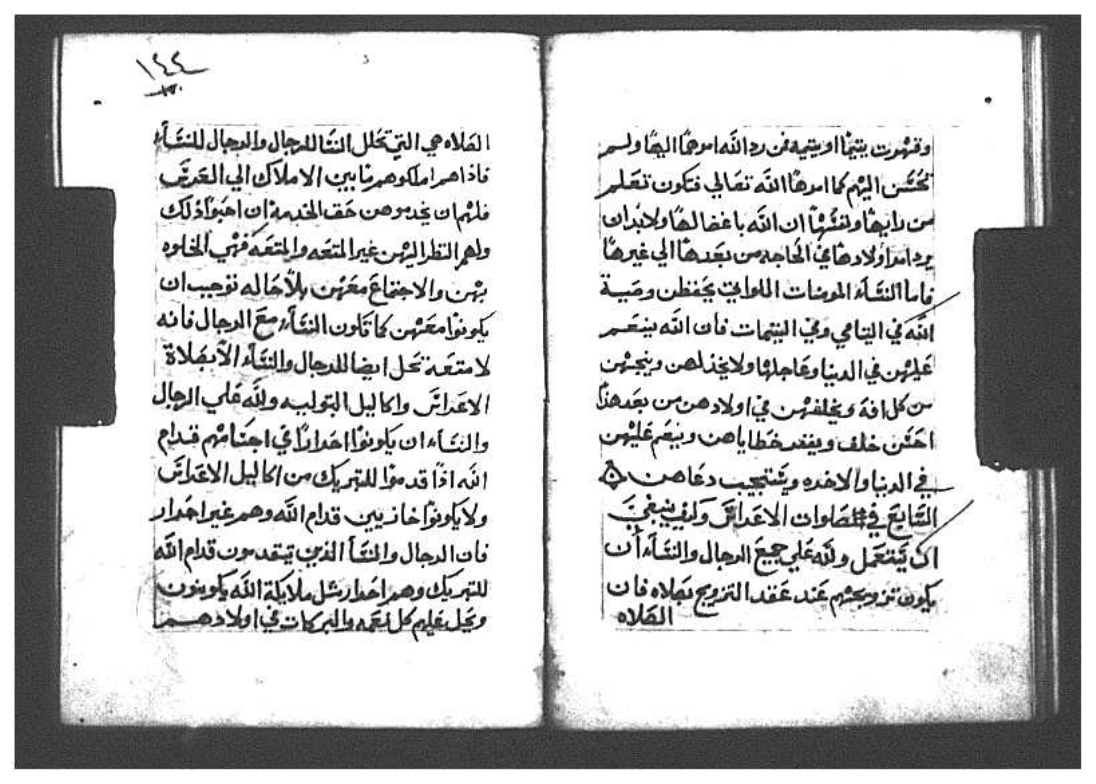 وقهرت يتيمًا او يتيمه فمن رد الله امرها اليها ولم
تحسن اليهم كما امرها الله تعالي فتكون تعلم
من رايها ونفسها ان الله باغضا لها ولابد ان
يرد امر اولادها في الحاجه من بعدها الي غيرها
فاما النسآء المومنات اللواتي يحفظن وصية
الله في اليتامي وفي اليتيمات فان الله ينعم
عليهن في الدنيا وعاجلها ولا يخذلهن وينجيهن
من كل افه ويخلفهن في اولادهن من بعدهذا
احسن خلف ويغفر خطاياهن وينعم عليهن
في الدنيا والاخره ويستجيب دعاهن
السابع في الصلوات الاعراس وكيف ينبغي
ان يستعمل ولله علي جميع الرجال والنسآء أن
يكون تزويجهم عند عقد التزويج بصلاه فان
الصلاه
١٤٤
الصلاه هي التي تحلل النسا للرجال والرجال للنسآء
فاذا هم املكوهم ما بين الاملاك الي العرس
فلهم ان يخدموهن حق الخدمة ان احبوا ذلك
ولهم النظر اليهن غير المتعه والمتعه فهي الخلوه
بهن والاجتماع معهن بلا حاله توجب ان
يكونوا معهن كما تكون النسآء مع الرجال فانه
لا متعة تحل ايضا للرجال والنسآء الا بصلاة
الاعراس واكاليل التوليه ولله علي الرجال
والنسآء ان يكونوا احرارًا في اجسامهم قدام
الله اذا قدموا للتبريك من اكاليل الاعراس
ولا يكونوا خازيين قدام الله وهم غير احرار
فان الرجال والنسآ الذين يتقدمون قدام الله
للتبريك وهم احرار مثل ملايكة الله يكونون
وتحل عليهم كل نعمه والبركات في اولادهم